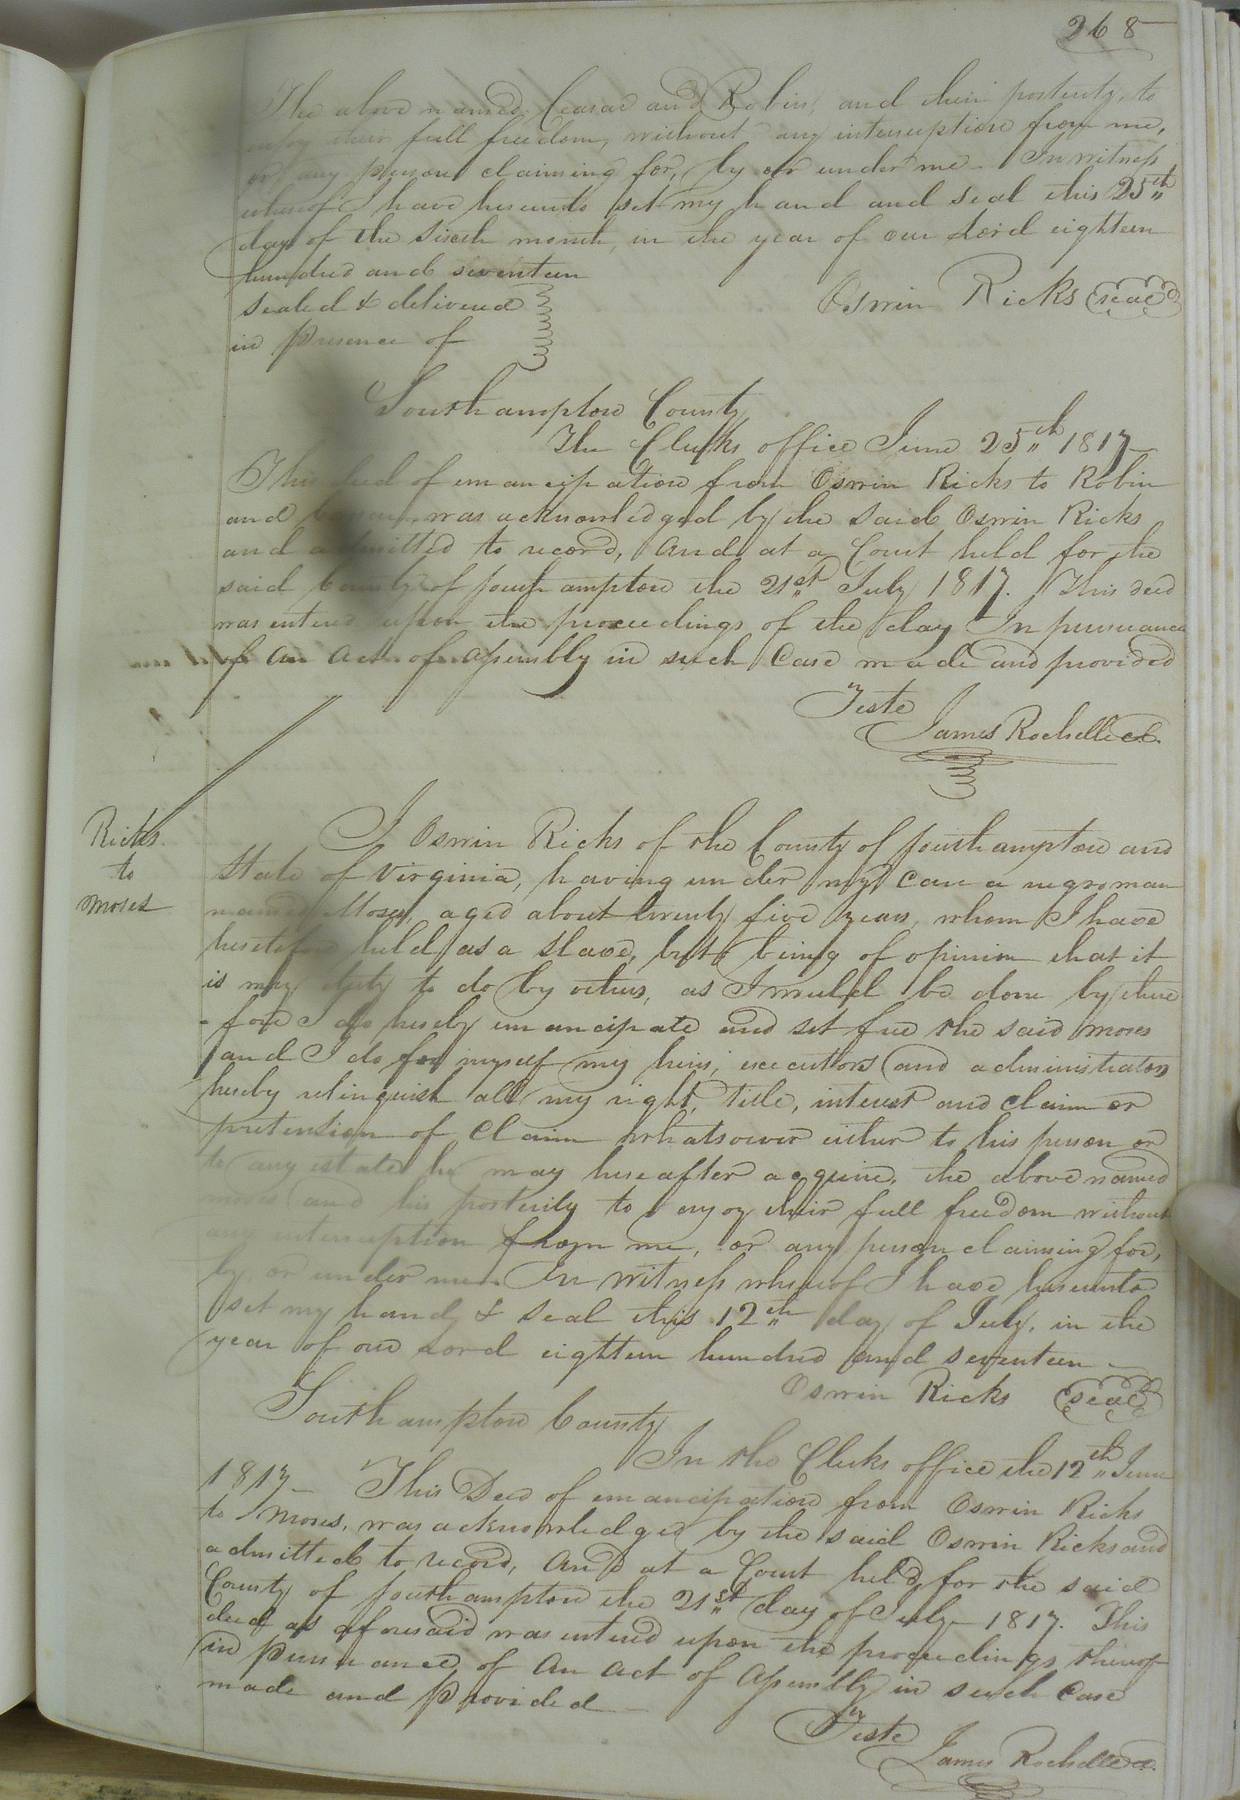 268
The above named Ceasar and Robin, and their posterity, to
enjoy their full freedom, without any interruption from me,
or any person claiming for, by or under me. In witness
whereof I have hereunto set my hand and seal this 25th
day of the sixth month, in the year of our Lord eighteen
hundred and seventeen
Sealed & delivered
in presence of
Oswin Ricks seal
Southampton County
The Clerks office June 25th 1817
This deed of emancipation from Oswin Ricks to Robin
and Ceasar, was acknowledged by the said Oswin Ricks
and admitted to record, And at a Court held for the
said County of Southampton the 21st July 1817. This deed
was entered upon the proceedings of the day In pursuance
of An Act of Assembly in such Case made and provided
Teste
James Rochelle cl.
Ricks
to
Moses
I Oswin Ricks of the County of Southampton and
State of Virginia, having under my Care a negro man
named Moses, aged about twenty five years, whom I have
heretofore held as a slave, but being of opinion that it
is my duty to do by others, as I would be done by there
-fore I do hereby emancipate and set free the said Moses
and I do for myself my heirs, executors and administrators
hereby relinquish all my right, Title, interest and claim or
pretension of Claim whatsoever either to his person or
to any estate he may hereafter acquire. the above named
moses and his posterity to enjoy their full freedom without
any interruption from me, or any person claiming for,
by, or under me. In witness whereof I have hereunto
set my hand & Seal this 12th day of July, in the
year of our Lord eighteen hundred and seventeen
Oswin Ricks seal
Southampton County
In the Clerks office the 12th June
1817 This Deed of emancipation from Oswin Ricks
to Moses, was acknowledged by the said Oswin Ricks and
admitted to record, And at a Court held for the said
County of Southampton the 21st day of July 1817. This
deed as aforesaid was entered upon the proceedings thereof
in pursuance of An Act of Assembly in such Case
made and provided
Teste
James Rochelle cl.